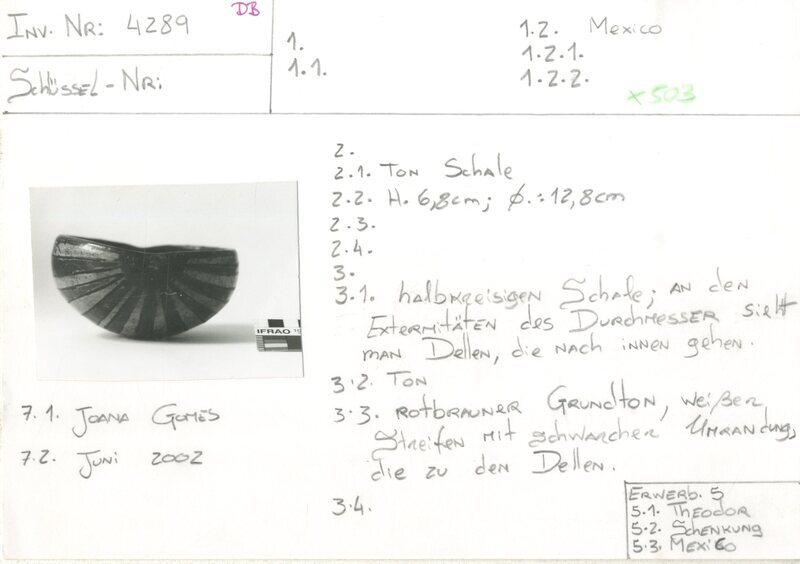 DB
Inv. Nr: 4289
Schlüssel-Nr:
1.
1.1.
1.2. Mexico
1.2.1.
1.2.2.
x503
2.
2.1. Ton Schale
2.2. H. 6,8cm; Ø.: 12,8cm
2.3.
2.4.
3.
3.1. halbkreisigen Schale; an den
Extermitäten des Durchmesser sieht
man Dellen, die nach innen gehen.
3.2. Ton
3.3. rotbrauner Grundton, weißer
Streifen mit schwarcher Umrandung,
die zu den Dellen.
3.4.
IFRAO
7.1. Joana Gomes
7.2. Juni 2002
Erwerb. 5
5.1. Theodor
5.2. Schenkung
5.3. Mexico